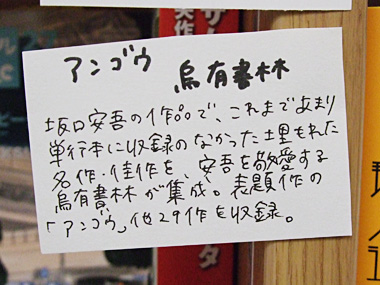 アンゴウ 烏有書林
坂口安吾の作品で、これまであまり
単行本に収録のなかった埋もれた
名作・佳作を、安吾を敬愛する
烏有書林が集成。表題作の
「アンゴウ」他29作を収録。